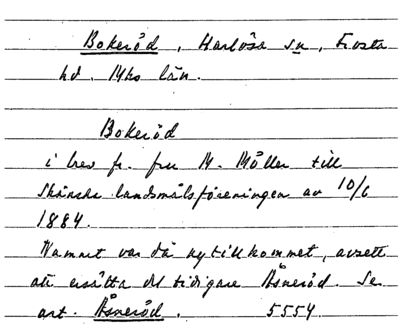 Bokeröd, Harlösa sn, Frosta
hd. Mhs län.
Bokeröd
i brev fr. fru M. Möller till
Skånska landsmålsföreningen av 10/6
1884.
Namnet var då nytillkommet, avsett
att ersätta det tidigare Åsneröd. Se
art. Åsneröd. 5554